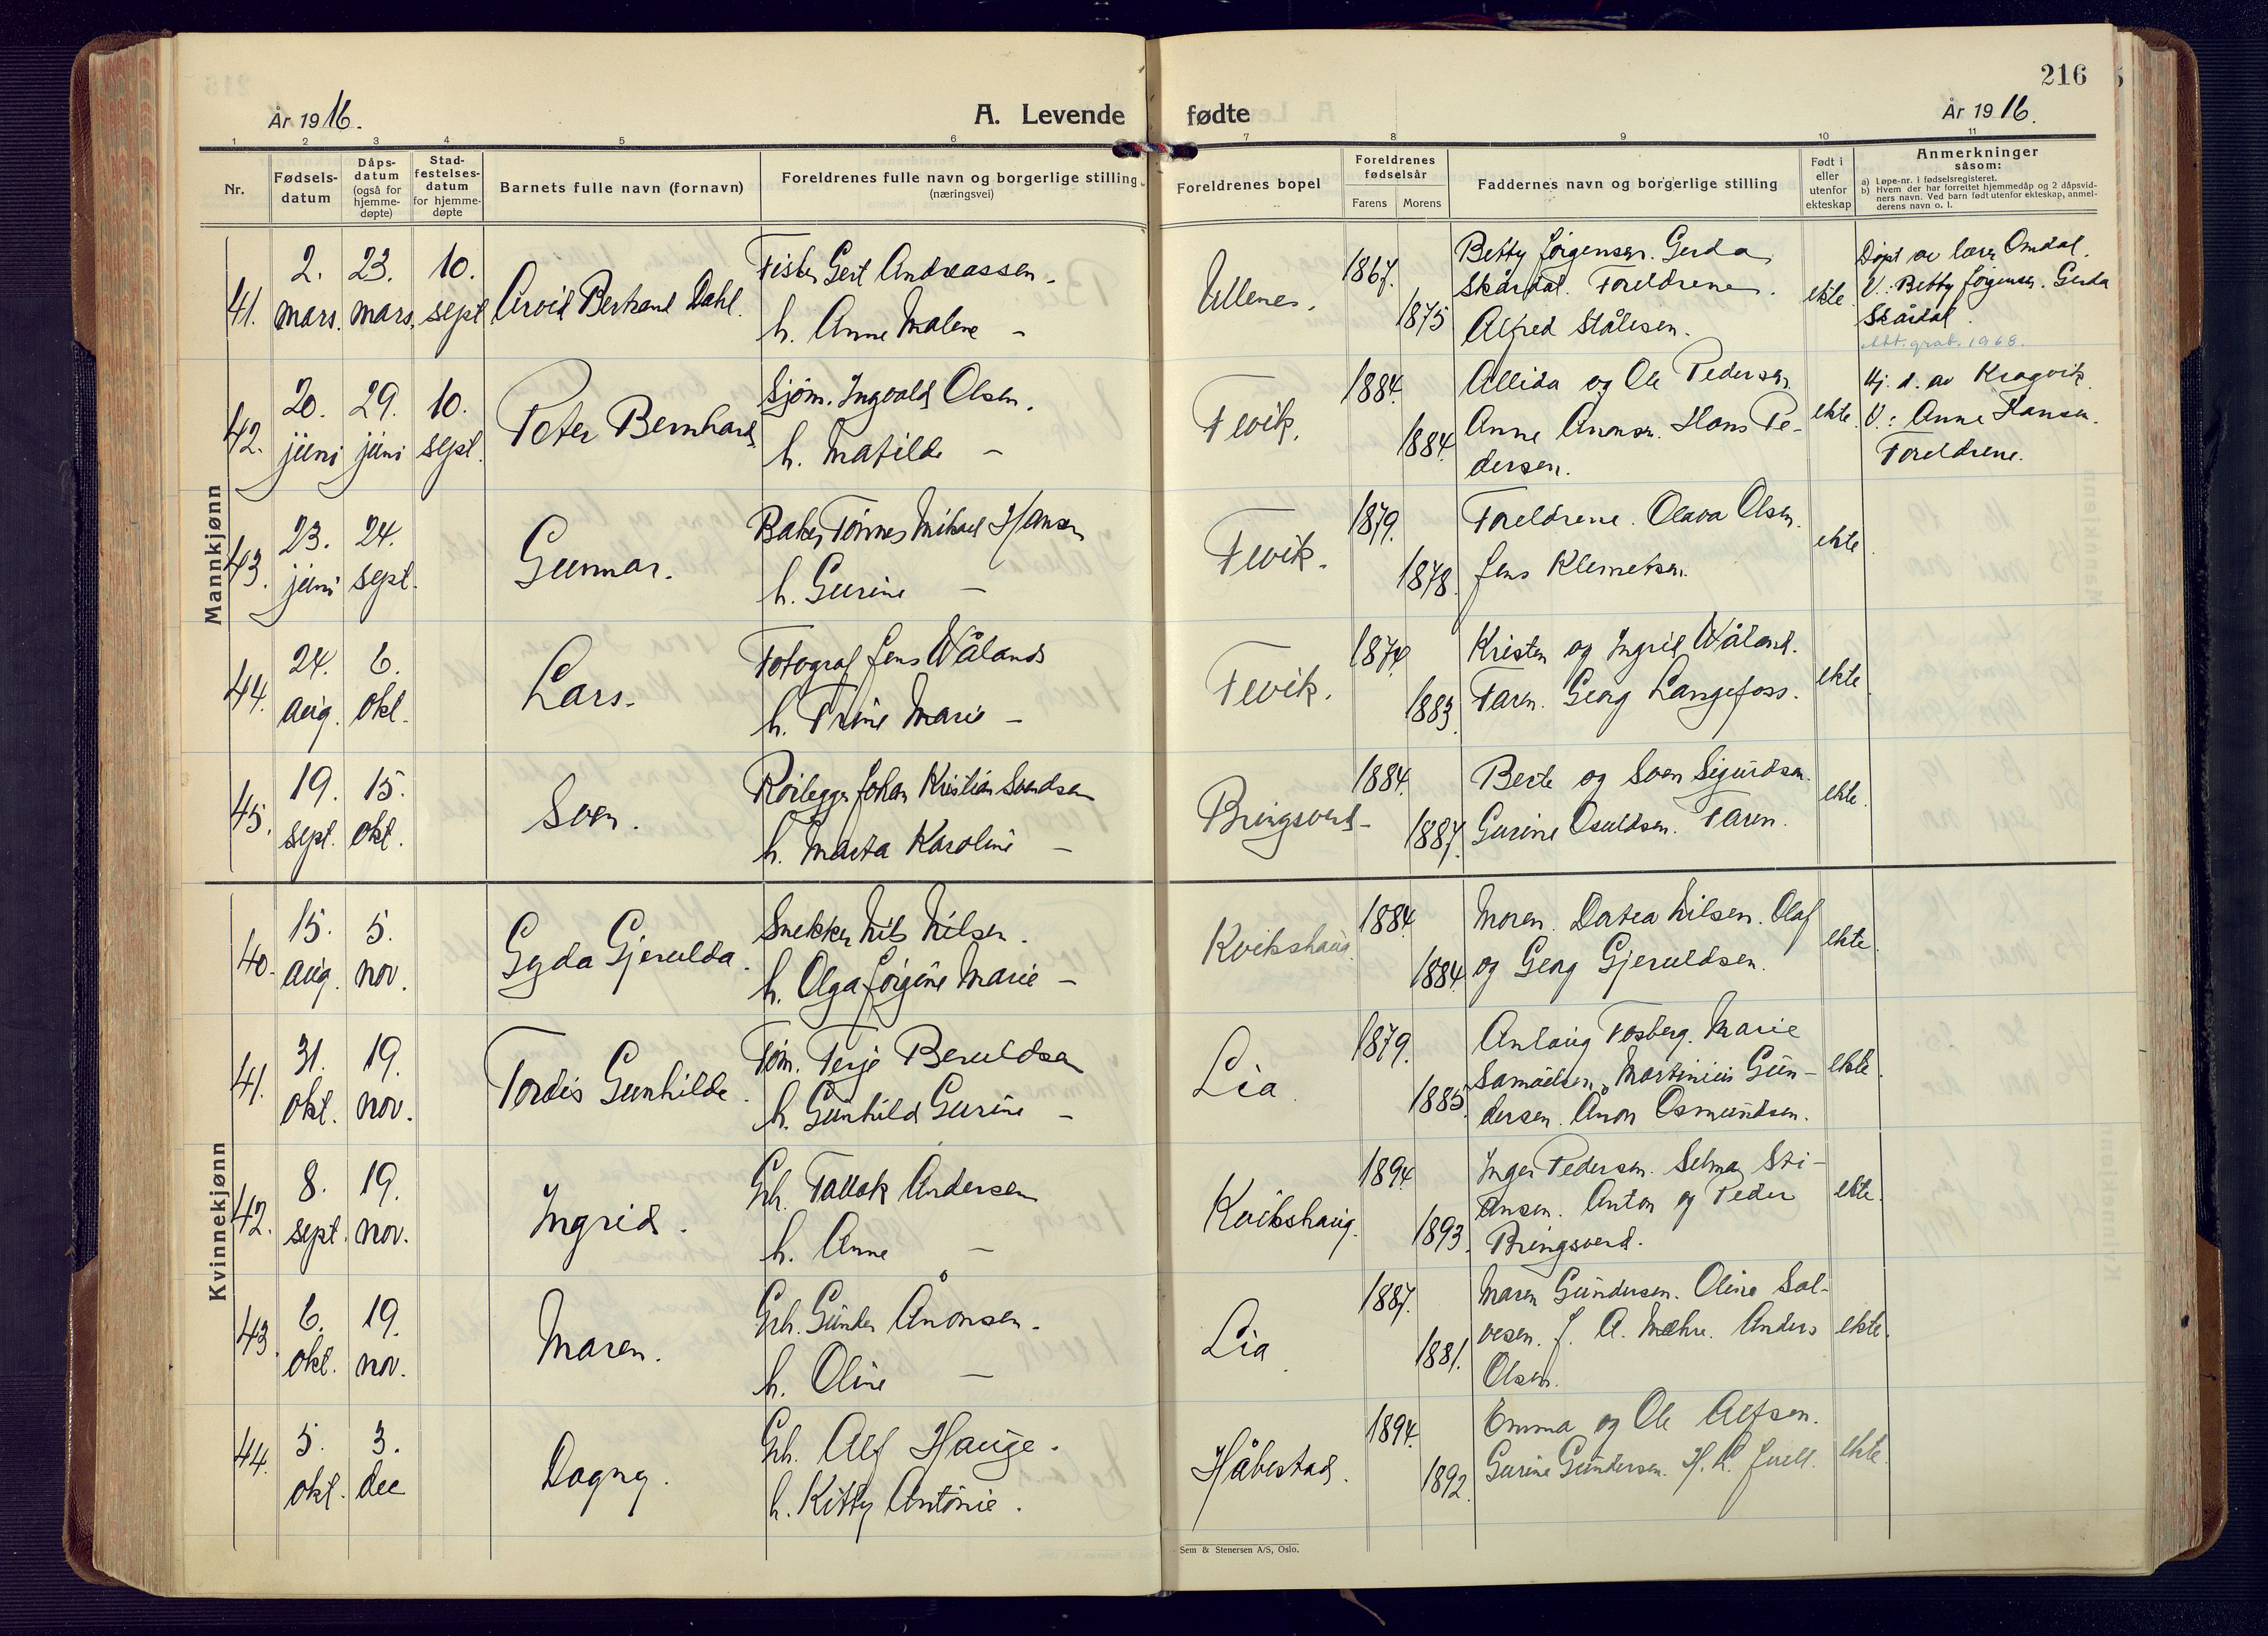 216
År 1916.
A. Levende fødte
År 1916.
1 2 3 4 5 6 7 8 9 10 11
Nr.
Fødsels-
datum
Dåps-
datum
(også for
hjemme-
døpte)
Stad-
festelses-
datum
for hjemme-
døpte
Barnets fulle navn (fornavn)
Foreldrenes fulle navn og borgerlige stilling
(næringsvei)
Foreldrenes bopel
Foreldrenes
fødselsår
Farens Morens
Faddernes navn og borgerlige stilling
Født i
eller
utenfor
ekteskap
Anmerkninger
såsom:
a) Løpe-nr. i fødselsregisteret.
b) Hvem der har forrettet hjemmedåp og 2 dåpsvid-
ners navn. Ved barn født utenfor ekteskap, anmel-
derens navn o. l.
Mannkjønn
41. 2. mars. 23. mars. 10. sept. Arvid Bertrand Dahl.
Fisker Gert Andreassen.
h. Anne Malene —
Ullenes. 1867. 1875
Betty Jørgensen. Gerda
Skårdal. Foreldrene.
Alfred Stålesen.
ekte.
Døpt av lærer Omdal.
V. Betty Jørgensen. Gerda
Skårdal.
1968.
42. 20. juni 29. juni 10. sept. Peter Bernhard
Sjøm. Ingvald Olsen.
h. Matilde —
Fevik. 1884. 1884.
Allida og Ole Pedersen.
Anne Anonsen. Hans Pe-
dersen.
ekte.
Hj. d. av Kragvik.
V.: Anne Hansen.
Foreldrene.
43. 23. juni 24. sept. Gunnar.
Baker Tønnes Mikael Hansen
h. Gurine —
Fevik. 1879. 1878.
Foreldrene. Olava Olsen.
Jens Klemetsen.
ekte.
44. 24. aug. 6. okt. Lars.
Fotograf Jens Wåland
h. Trine Marie —
Fevik. 1874 1883
Kristen og Ingrid Wåland.
Faren. Georg Langefoss.
ekte.
45. 19. sept. 15. okt. Sven.
Rørlegger Johan Kristian Svendsen
h. Marta Karoline —
Bringsverd — 1884. 1887.
Berte og Sven Sigurdsen.
Gurine Osuldsen. Faren.
ekte.
Kvinnekjønn
40. 15. aug. 5. nov. Gyda Gjerulda.
Snekker Nils Nilsen.
h. Olga Jørgine Marie —
Kvikshaug. 1884 1884
Moren. Dortea Nilsen. Olaf
og Georg Gjeruldsen.
ekte.
41. 31. okt. 19. nov. Tordis Gunhilde.
Tøm. Terje Beruldsen
h. Gunhild Gurine —
Lia. 1879. 1885
Anlaug Fosberg. Marie
Samuelsen. Martinius Gun-
dersen. Anon Osmundsen.
ekte.
42. 8. sept. 19. nov. Ingrid.
Grh. Tallak Andersen
h. Anne —
Kvikshaug. 1894. 1893.
Inger Pedersen. Selma Sti-
ansen. Anton og Peder
Bringsverd.
ekte.
43. 6. okt. 19. nov. Maren.
Grh. Gunder Ånonsen.
h. Oline —
Lia. 1887. 1881.
Maren Gundersen. Oline Sal-
vesen. J. A. Mæhre. Anders
Olsen.
ekte.
44. 5. okt. 3. dec Dagny.
Grh. Alf Hauge.
h. Kitty Antonie.
Håbestad. 1894. 1892.
Emma og Ole Alfsen.
Gurine Gundersen. H. K. Juell.
ekte.
Sem & Stenersen A/S, Oslo.